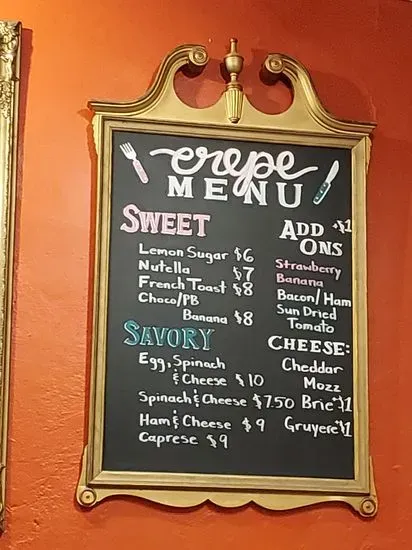 crepe
MENU
SWEET
Lemon Sugar $6
Nutella $7
French Toast $8
Choco/PB
Banana $8
SAVORY
Egg, Spinach
& Cheese $10
Spinach & Cheese $7.50
Ham & Cheese $9
Caprese $9
ADD +$1
ONS
Strawberry
Banana
Bacon/Ham
Sun Dried
Tomato
CHEESE:
Cheddar
Mozz
Brie +$1
Gruyere +$1